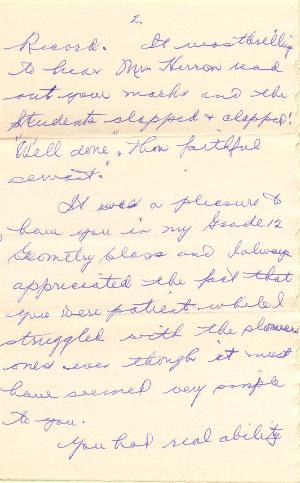 2.
Record. It was thrilling
to hear Mr. Herron read
out your marks and the
Students clapped & clapped!
"Well done", thou faithful
servant."
It was a pleasure to
have you in my Grade 12
Geometry class and I always
appreciated the fact that
you were patient while I
struggled with the slower
ones even though it must
have seemed very simple
to you.
You had real ability